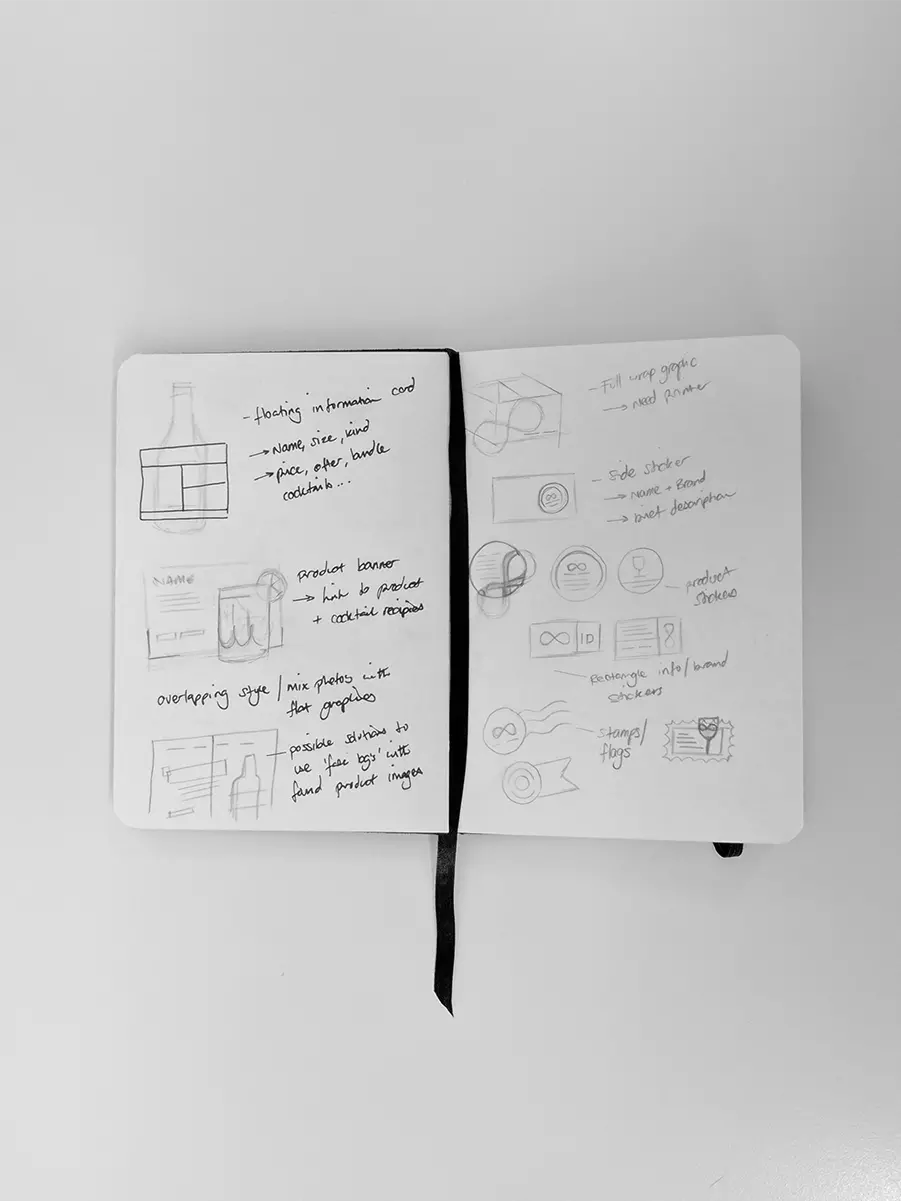 - floating information card
→ Name, size, kind
→ price, offer, bundle
cocktails...
NAME
product banner
→ link to product
+ cocktail recipies
overlapping style / mix photos with
flat graphics
- possible solutions to
use 'fake bg's' with
found product images
- Full wrap graphic
→ need printer
- Side sticker
→ Name + Brand
→ brief description
- product
stickers
ID
- Rectangle info/brand
stickers
- stamps/
flags